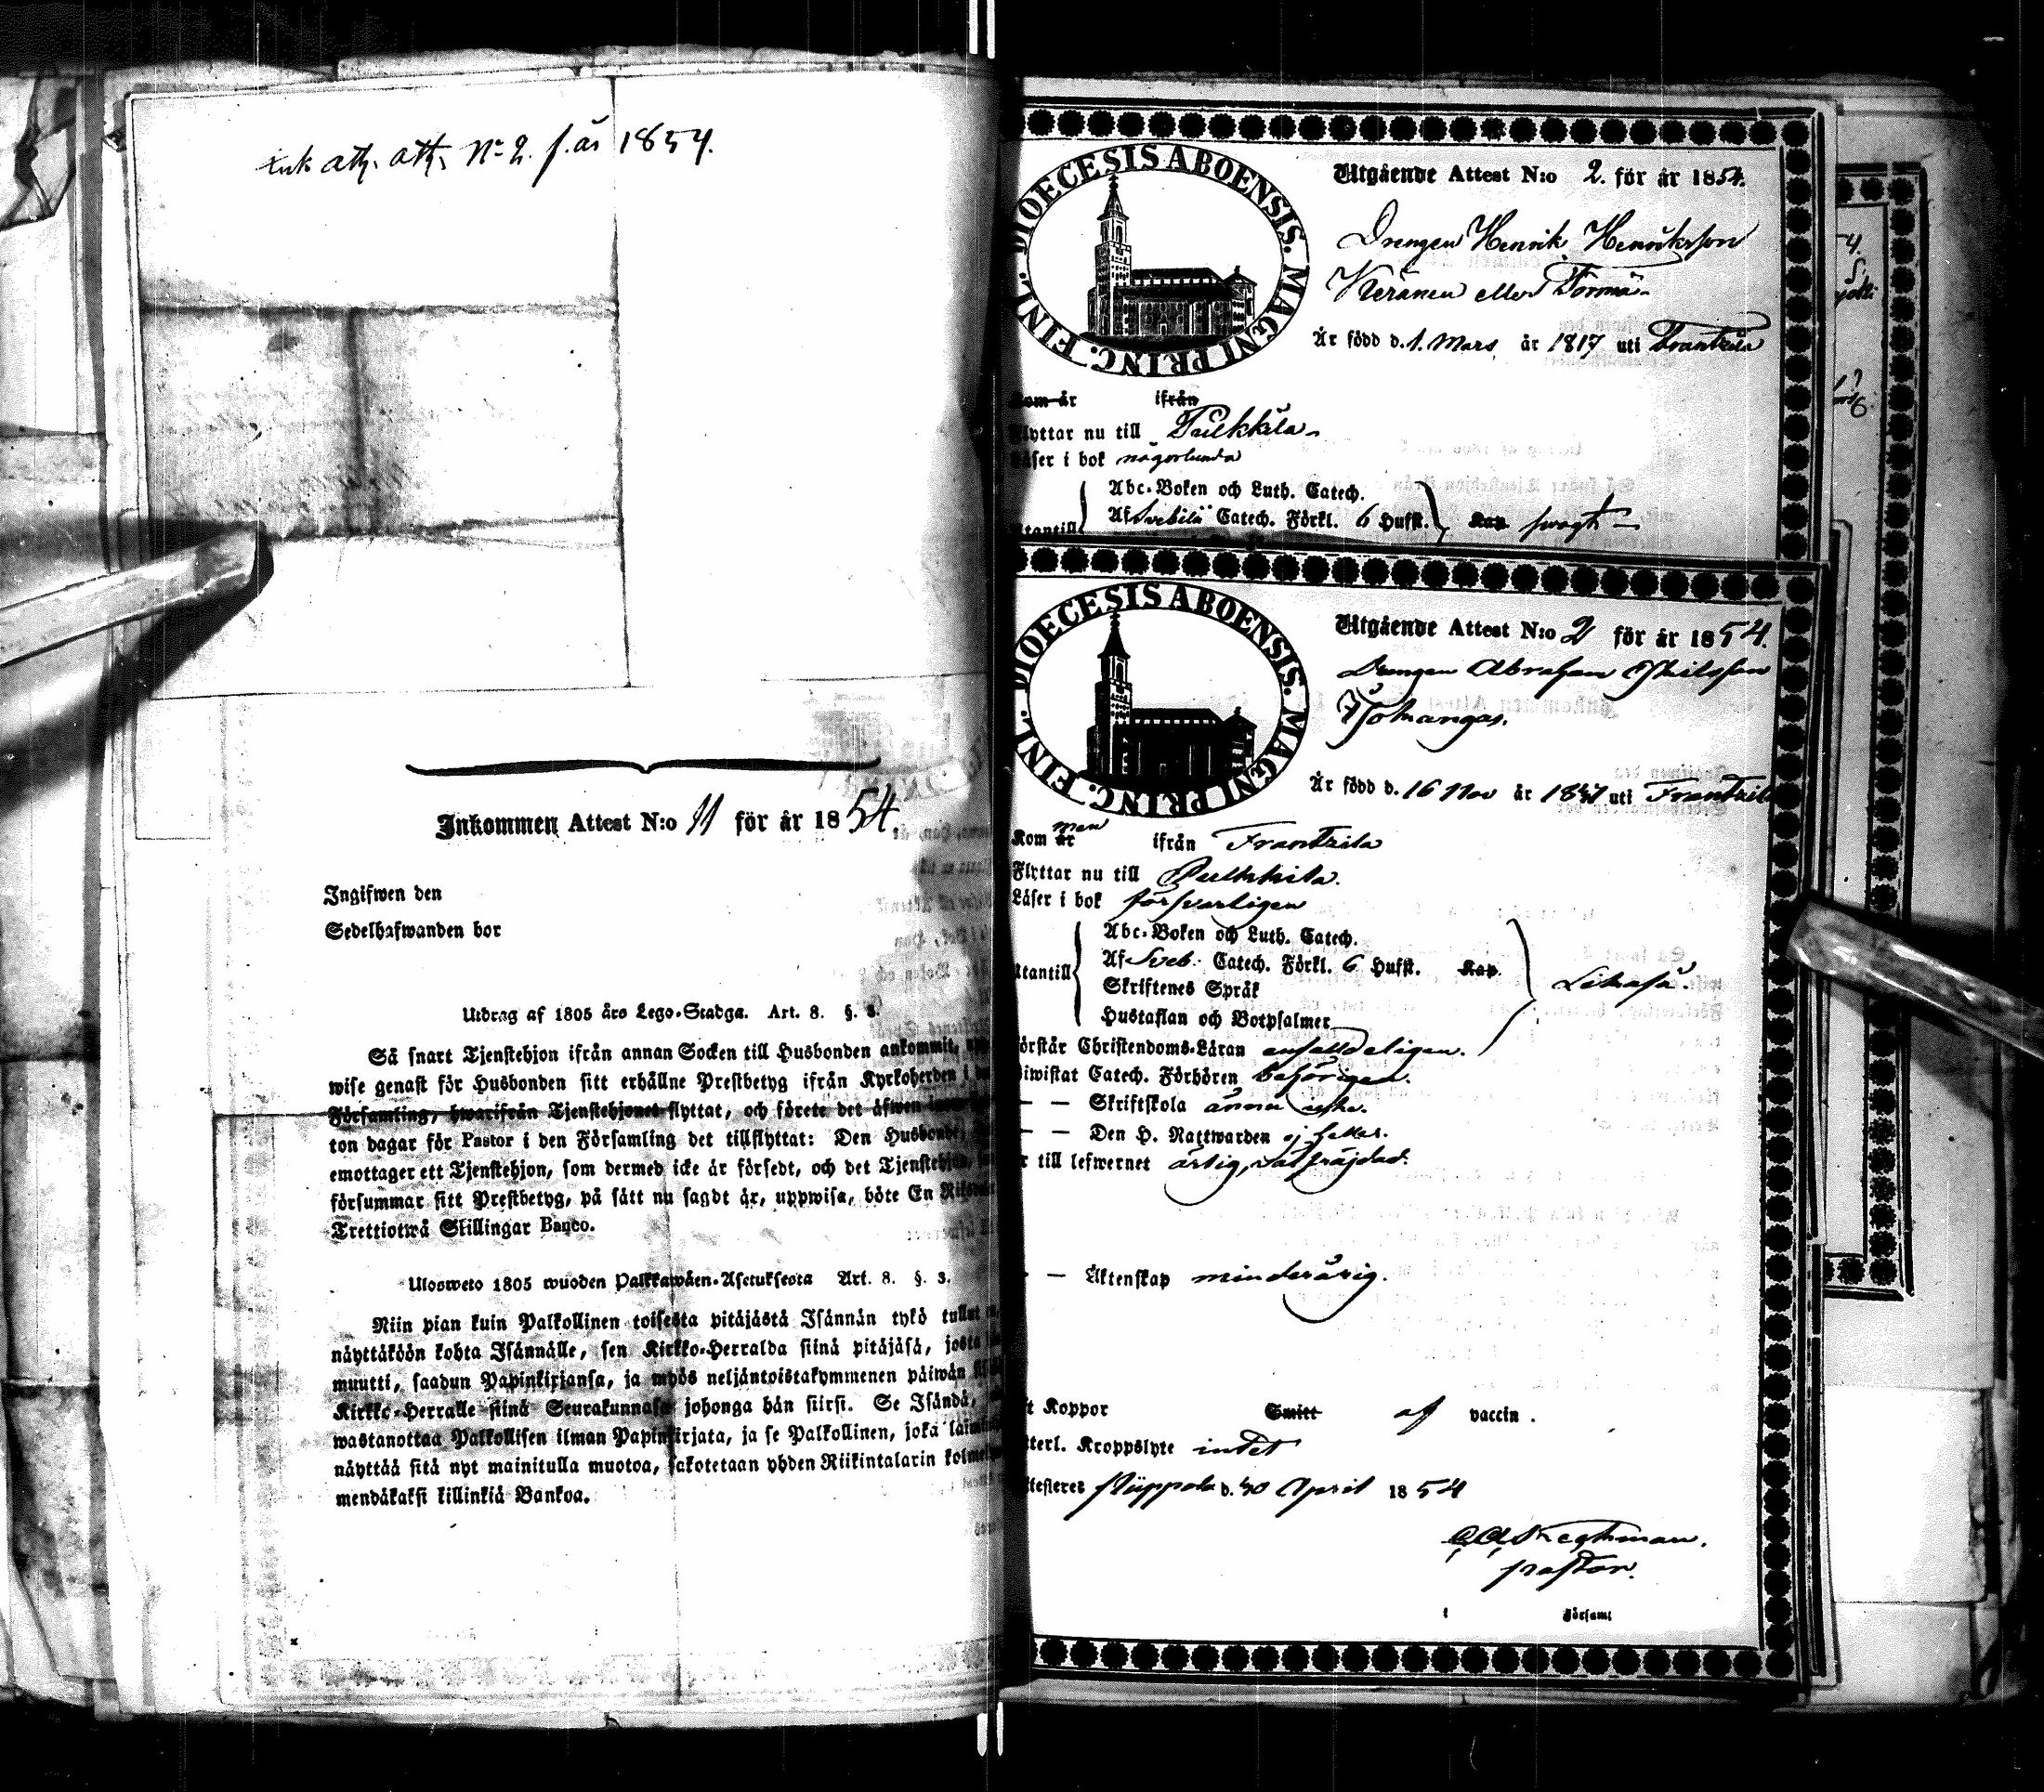 att. N:o 2. f. år 1854.
Inkommen Attest N:o 11 för år 1854.
Ingifwen den
Sedelhafwanden bor
Utdrag af 1805 års Lego-Stadga. Art. 8. §. 3.
Så snart Tjenstehjon ifrån annan Socken till Husbonden ankommit,
wise genast för Husbonden sitt erhållne Prestbetyg ifrån Kyrkoherden i
Församling, hwarifrån Tjenstehjonet flyttat, och förete det äfwen
ton dagar för Pastor i den Församling det tillflyttat: Den Husbonde,
emottager ett Tjenstehjon, som dermed icke är försedt, och det Tjenstehjon,
försummar sitt Prestbetyg, på sätt nu sagdt är, uppwisa, böte En
Trettiotwå Skillingar Banco.
Ulosweto 1805 wuoden Palkkawäen-Asetuksesta Art. 8. §. 3.
Niin pian kuin Palkollinen toisesta pitäjästä Isännän tykö tullut
näyttäköön kohta Isännälle, sen Kirkko-Herralda siinä pitäjäsä, josta
muutti, saadun Papinkirjansa, ja myös neljäntoistakymmenen päiwän
Kirkko-Herralle siinä Seurakunnasa johonga hän siirsi. Se Isändä,
wastanottaa Palkollisen ilman Papinkirjata, ja se Palkollinen, joka
näyttää sitä nyt mainitulla muotoa, sakotetaan yhden Riikintalarin
mendäkaksi killinkiä Bankoa.
FINL. DIOECESIS ABOENSIS. MAGNI PRINC.
Utgående Attest N:o 2. för år 1854.
Drengen Henrik Henriksson
Keränen eller Törmä
Är född d. 1. Mars år 1817 uti Frantsila
Kom år ifrån
Flyttar nu till Pulkkila
Läser i bok någorlunda
Abc-Boken och Luth. Catech.
Af Svebilii Catech. Förkl. 6 Hufst. Kap
Utantill
FINL. DIOECESIS ABOENSIS. MAGNI PRINC.
Utgående Attest N:o 2 för år 1854.
Drengen Abraham
Är född d. 16 Nov år uti Frantzila
Kom år ifrån Frantzila
Flyttar nu till Pulkkila.
Läser i bok försvarligen
Abc-Boken och Luth. Catech.
Utantill Af Sveb. Catech. Förkl. 6 Hufst. Kap
Skriftenes Språk
Hustaflan och Botpsalmer
Förstår Christendoms-Läran enfaldeligen.
Biwistat Catech. Förhören behörigen.
— — Skriftskola ännu icke.
— — Den H. Nattwarden ej heller.
Är till lefwernet ärlig, välfräjdad.
— Äktenskap minderårig.
Koppor Smitt af vaccin.
terl. Kroppslyte intet
Attesteres Piippola d. 30 April 1854
pastor.
i Församl